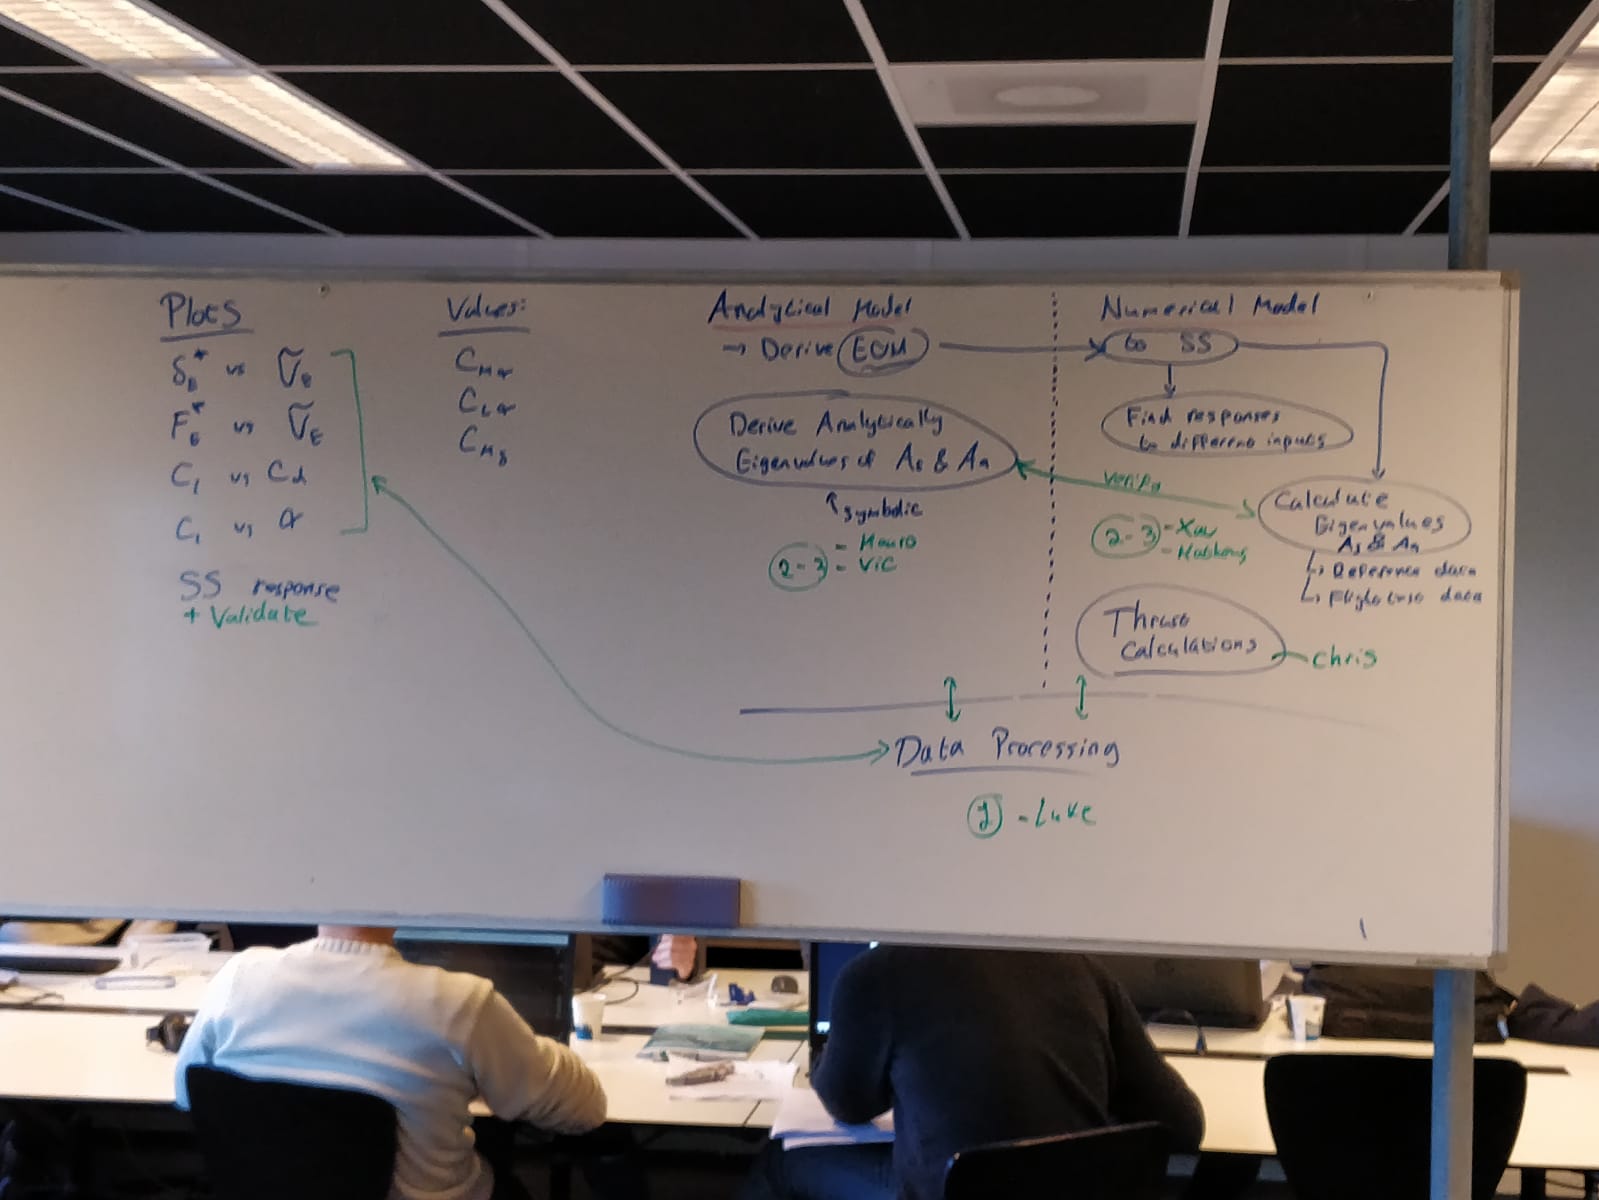 Plots
δ* vs Ṽe
Fe* vs ṼE
C1 vs Cd
C1 vs α
SS response
+ Validate
Values:
CMα
CLα
CMδ
Analytical Model
→ Derive EOM
Derive Analytically
Eigenvalues of As & Aa
↑ symbolic
2-3 - Mauro
- Vic
Numerical Model
to SS
Find responses
to different inputs
verify
Calculate
Eigenvalues
As & Aa
↳ Reference data
↳ Flight test data
2-3 - Xav
Thrust
Calculations
Chris
Data Processing
1 - Luke